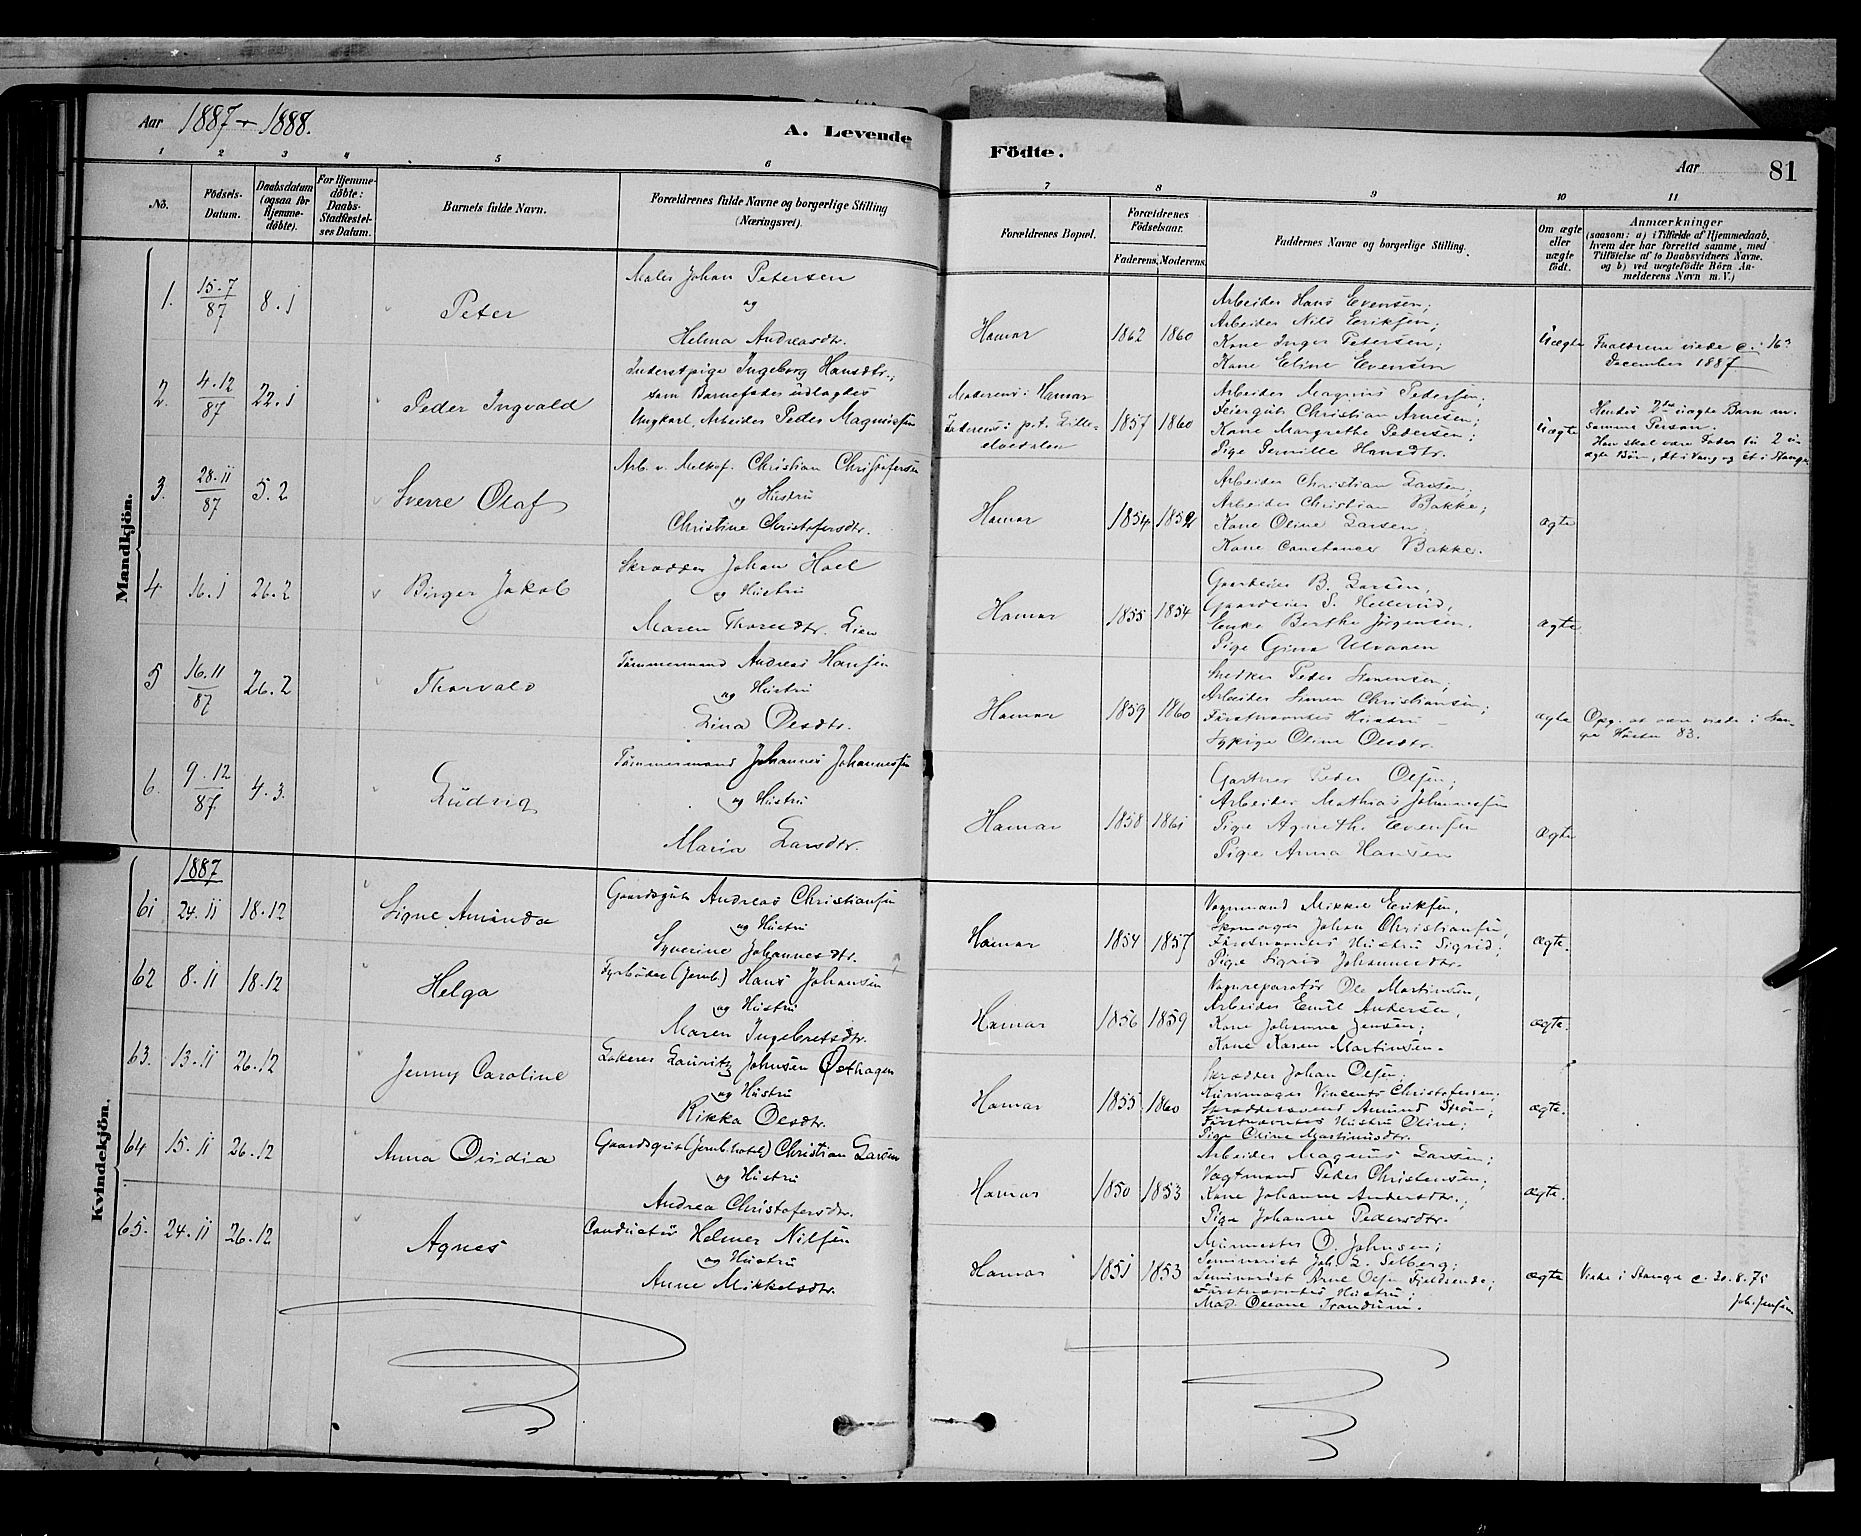 Aar 1887 + 1888.
A. Levende
Födte.
Aar
81
1 2 3 4 5 6
7 8 9 10 11
No.
Födsels-
Datum.
Daabsdatum
(ogsaa for
Hjemme-
döbte).
For Hjemme-
döbte:
Daabs-
Stadfæstel-
ses Datum.
Barnets fulde Navn.
Forældrenes fulde Navne og borgerlige Stilling
(Næringsvei).
Forældrenes Bopæl.
Forældrenes
Födselsaar.
Faderens. Moderens.
Faddernes Navne og borgerlige Stilling.
Om ægte
eller
uægte
födt.
Anmærkninger
(saasom: a) i Tilfælde af Hjemmedaab,
hvem der har forrettet samme, med
Tilföielse af to Daabsvidners Navne.
og b) ved uægtefödte Börn An-
melderens Navn m. V.)
Mandkjön.
1. 15.7/87 8.1 Peter
Maler Johan Petersen
og
Helma Andreasdtr.
Hamar 1862 1860
Arbeider Hans Evensen;
Arbeider Nils Eriksen;
Kone Inger Petersen;
Kone Eline Evensen
Uægte
Forældrene viede c. 16
December 1887
2. 4.12/87 22.1 Peder Ingvald
Inderstpige Ingeborg Hansdtr.;
som Barnefader udlagdes
Ungkarl, Arbeider Peder Magnussen
Moderens: Hamar
Faderens: p.t. Lille-
elvedalen
1857 1860
Arbeider Magnus Pedersen;
Feiergut Christian Arnesen;
Kone Margrethe Pedersen;
Pige Pernille Hansdtr.
Uægte
Hendes 2det uægte Barn m.
samme Person.
Han skal være Fader til 2 u-
ægte Börn, et i Vang og et i Stange
3. 28.11/87 5.2 Sverre Olaf
Arb. v. Melkef. Christian Christofersen
og Hustru
Christine Christofersdtr.
Hamar 1854 1852
Arbeider Christian Larsen;
Arbeider Christian Bakke;
Kone Oline Larsen;
Kone Constance Bakke.
ægte
4 16.1 26.2 Birger Jakob
Skrædder Johan Hoel
og Hustru
Maren Thoresdtr. Lien
Hamar 1855 1854
Gaardeier B. Larsen,
Gaardeier S. Hellerud,
Enke Berthe Jörgensen.
Pige Gina Ulvanen
ægte
5 16.11/87 26.2 Thorvald
Tömmermand Andreas Hansen
og Hustru
Lina Olesdtr.
Hamar 1859 1860
Snedker Peder Simensen;
Arbeider Simen Christiansen;
Förstnævntes Hustru
Sypige Oline Olesdtr.
ægte
Opg. at være viede i Stan-
ge Hösten 83.
6. 9.12/87 4.3. Ludvig
Tömmermand Johannes Johannessen
og Hustru
Maria Larsdtr.
Hamar 1858 1861
Gartner Peder Olsen;
Arbeider Mathias Johannessen
Pige Agnethe Evensen
Pige Anna Hansen
ægte
Kvindekjön.
1887
61 24.11 18.12 Signe Aminda
Gaardsgut Andreas Christiansen
og Hustru
Syverine Johannesdtr.
Hamar 1854 1857
Vognmand Mikkel Eriksen,
Skomager Johan Christiansen,
Förstnævntes Hustru Sigrid;
Pige Sigrid Johannesdtr.
ægte.
62 8.11 18.12 Helga
Fyrböder (Jernb.) Hans Johansen
og Hustru
Maren Ingebretsdtr.
Hamar 1856 1859
Vognreparatör Ole Martinsen,
Arbeider Emil Andersen,
Kone Johanne Jensen;
Kone Karen Martinsen.
ægte.
63. 13.11 26.12 Jenny Caroline
Lakerer Lauritz Johnsen Östhagen
og Hustru
Rikka Olesdtr.
Hamar 1855 1860
Skrædder Johan Olsen;
Kurvmager Vincents Christofersen;
Skræddersvend Amund Spörn;
Förstnævntes Hustru Oline;
Pige Oline Martinusdtr.
ægte.
64 15.11 26.12 Anna Ovidia
Gaardsgut (Jernb.hotel) Christian Larsen
og Hustru
Andrea Christofersdtr.
Hamar 1850 1853
Arbeider Magnus Larsen;
Vagtmand Peder Christensen;
Kone Johanne Andersdtr.;
Pige Johanne Pedersdtr.
ægte.
65. 24.11 26.12 Agnes
Conducteur Helmer Nilsen
og Hustru
Anne Mikkelsdtr.
Hamar 1851 1853
Murmester O. Johnsen;
Seminarist Joh. L. Selberg;
Seminarist Arne Olsen Fjeldsende;
Förstnævntes Hustru;
Mad. Oleane Trandum.
ægte
Viede i Stange c. 30.8.75
Joh. Jensen